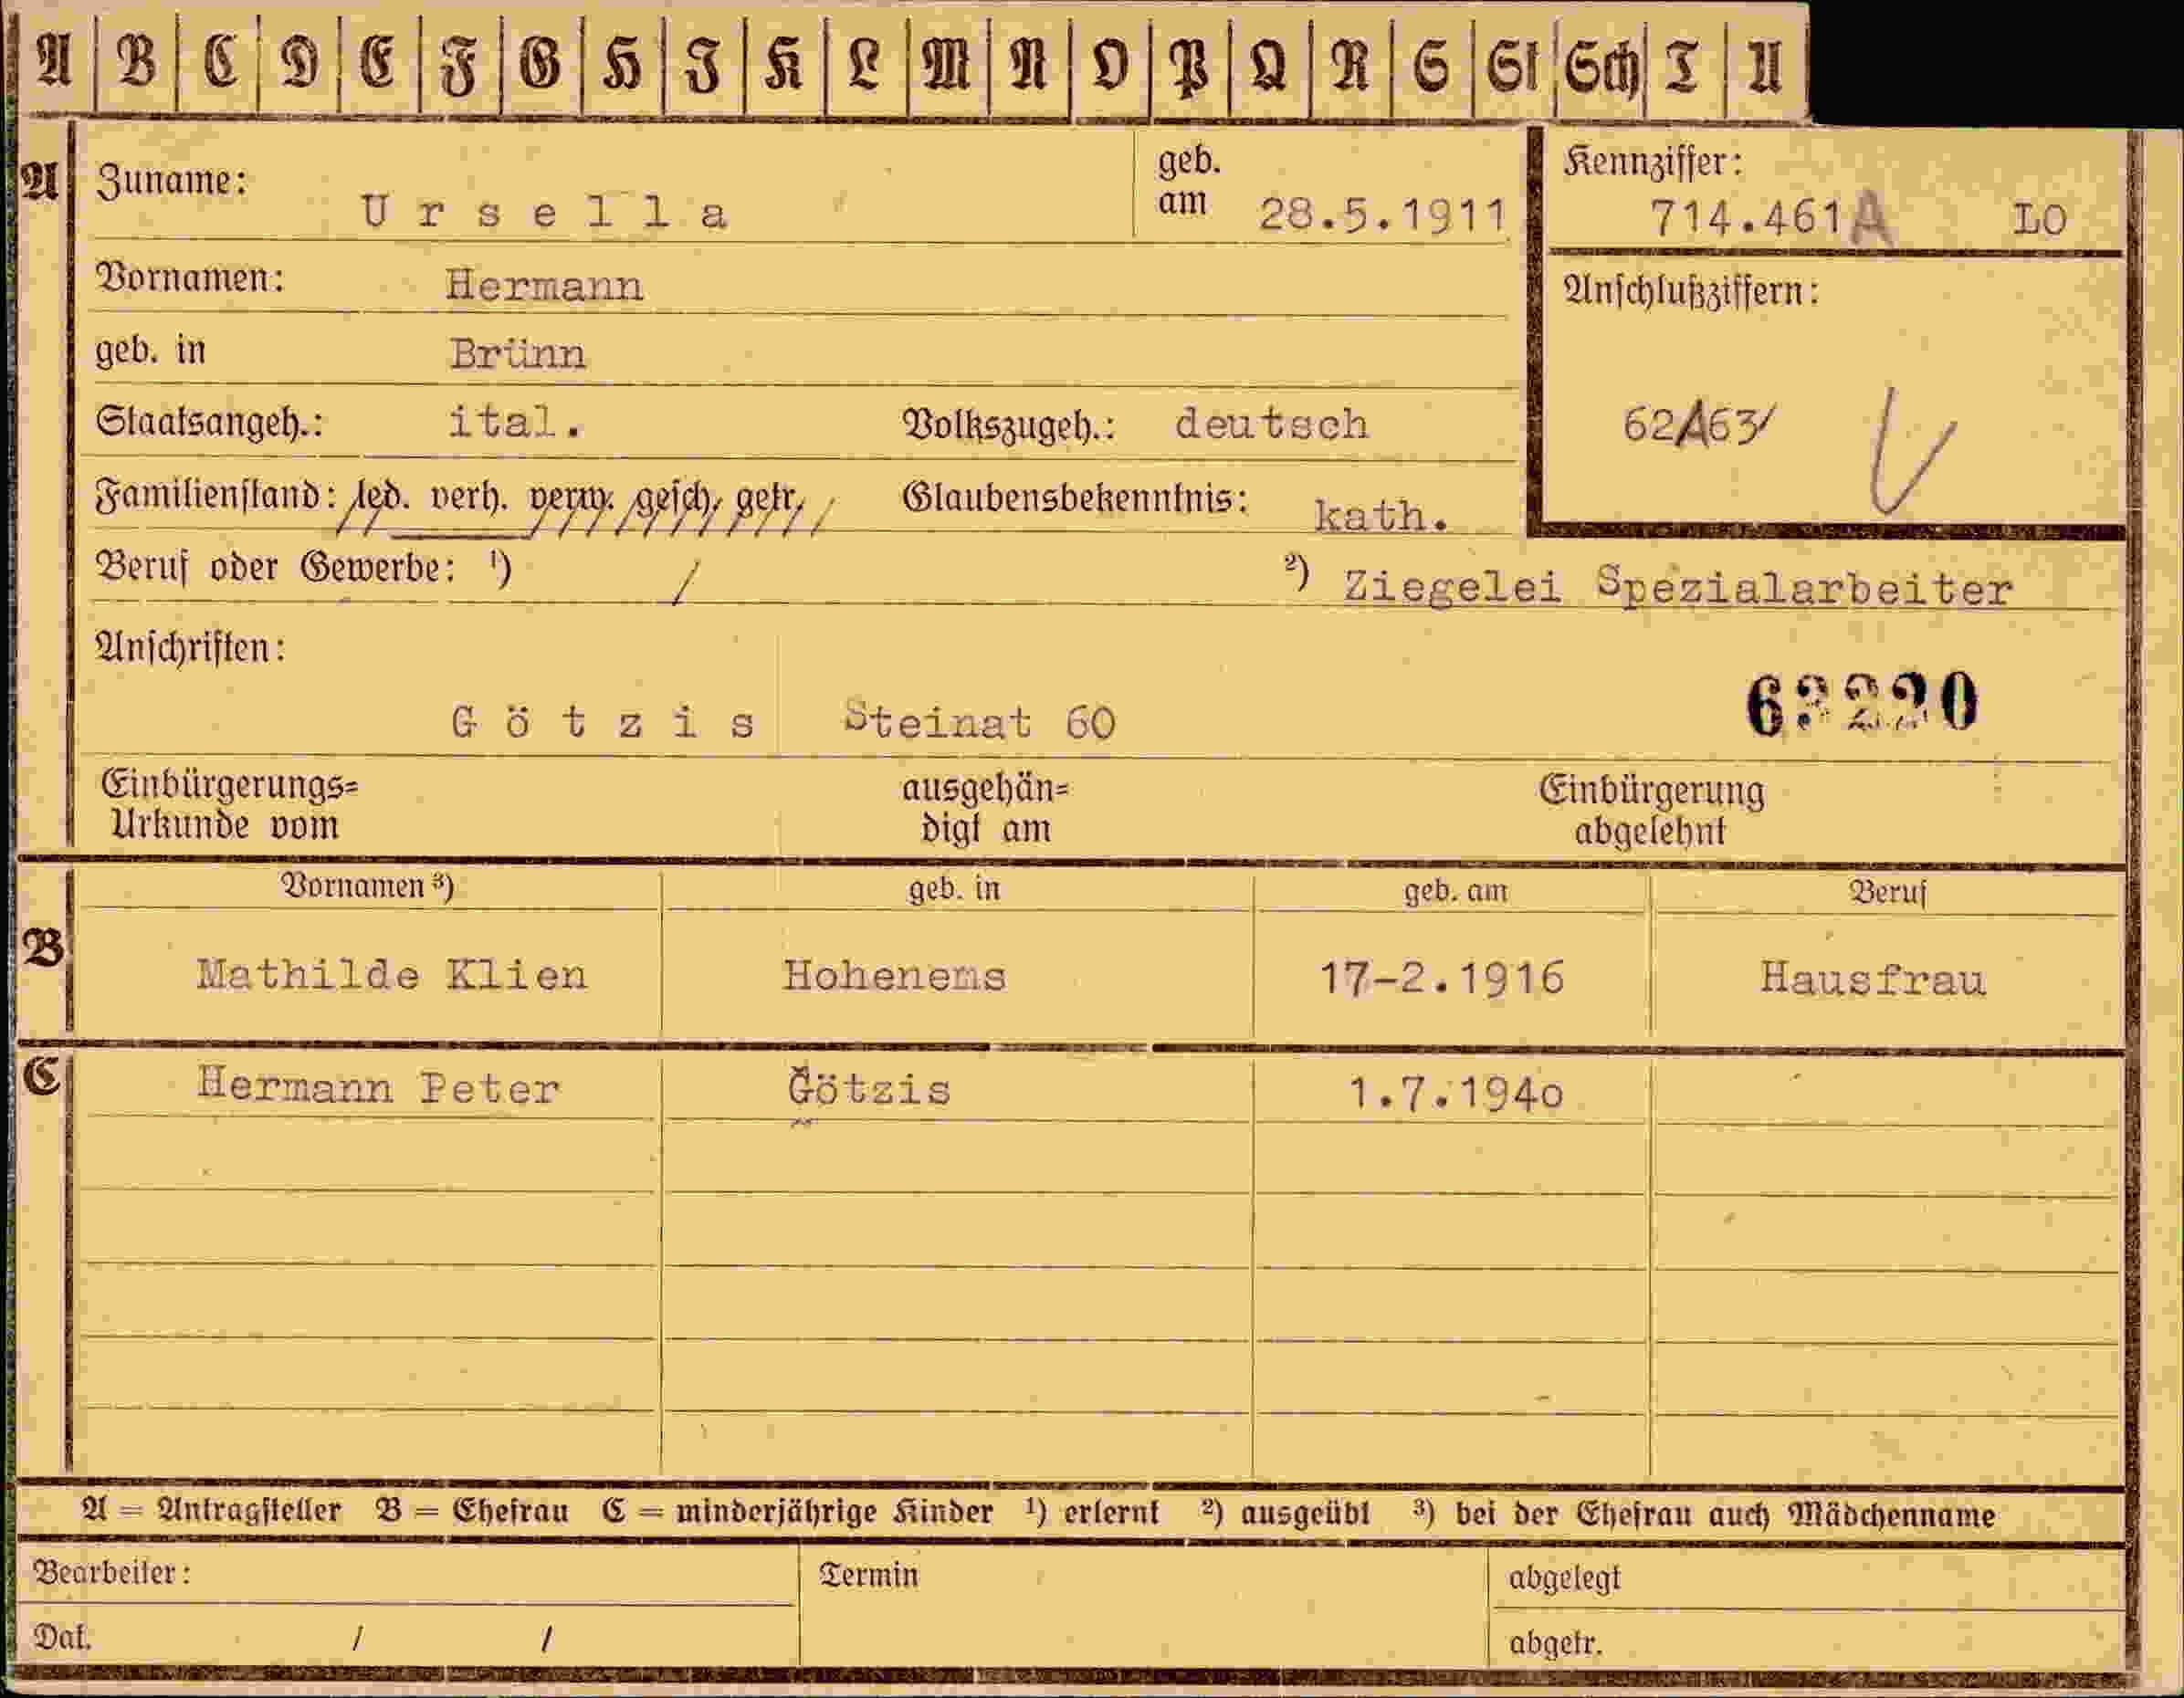 A B C D E F G H I K L M N O P Q R S St Sch T U
A Zuname: Ursella geb. am 28.5.1911 Kennziffer: 714.461A LO
Vornamen: Hermann Anschlußziffern:
geb. in Brünn
Staatsangeh.: ital. Volkszugeh.: deutsch 62A63/
Familienstand: led. verh. verw. gesch. getr. Glaubensbekenntnis: kath.
Beruf oder Gewerbe: ¹) / ²) Ziegelei Spezialarbeiter
Anschriften:
Götzis Steinat 60 63220
Einbürgerungs= ausgehän= Einbürgerung
Urkunde vom digt am abgelehnt
Vornamen ³) geb. in geb. am Beruf
B Mathilde Klien Hohenems 17-2.1916 Hausfrau
C Hermann Peter Götzis 1.7.1940
A = Antragsteller B = Ehefrau C = minderjährige Kinder ¹) erlernt ²) ausgeübt ³) bei der Ehefrau auch Mädchenname
Bearbeiter: Termin abgelegt
Dat. / / abgetr.